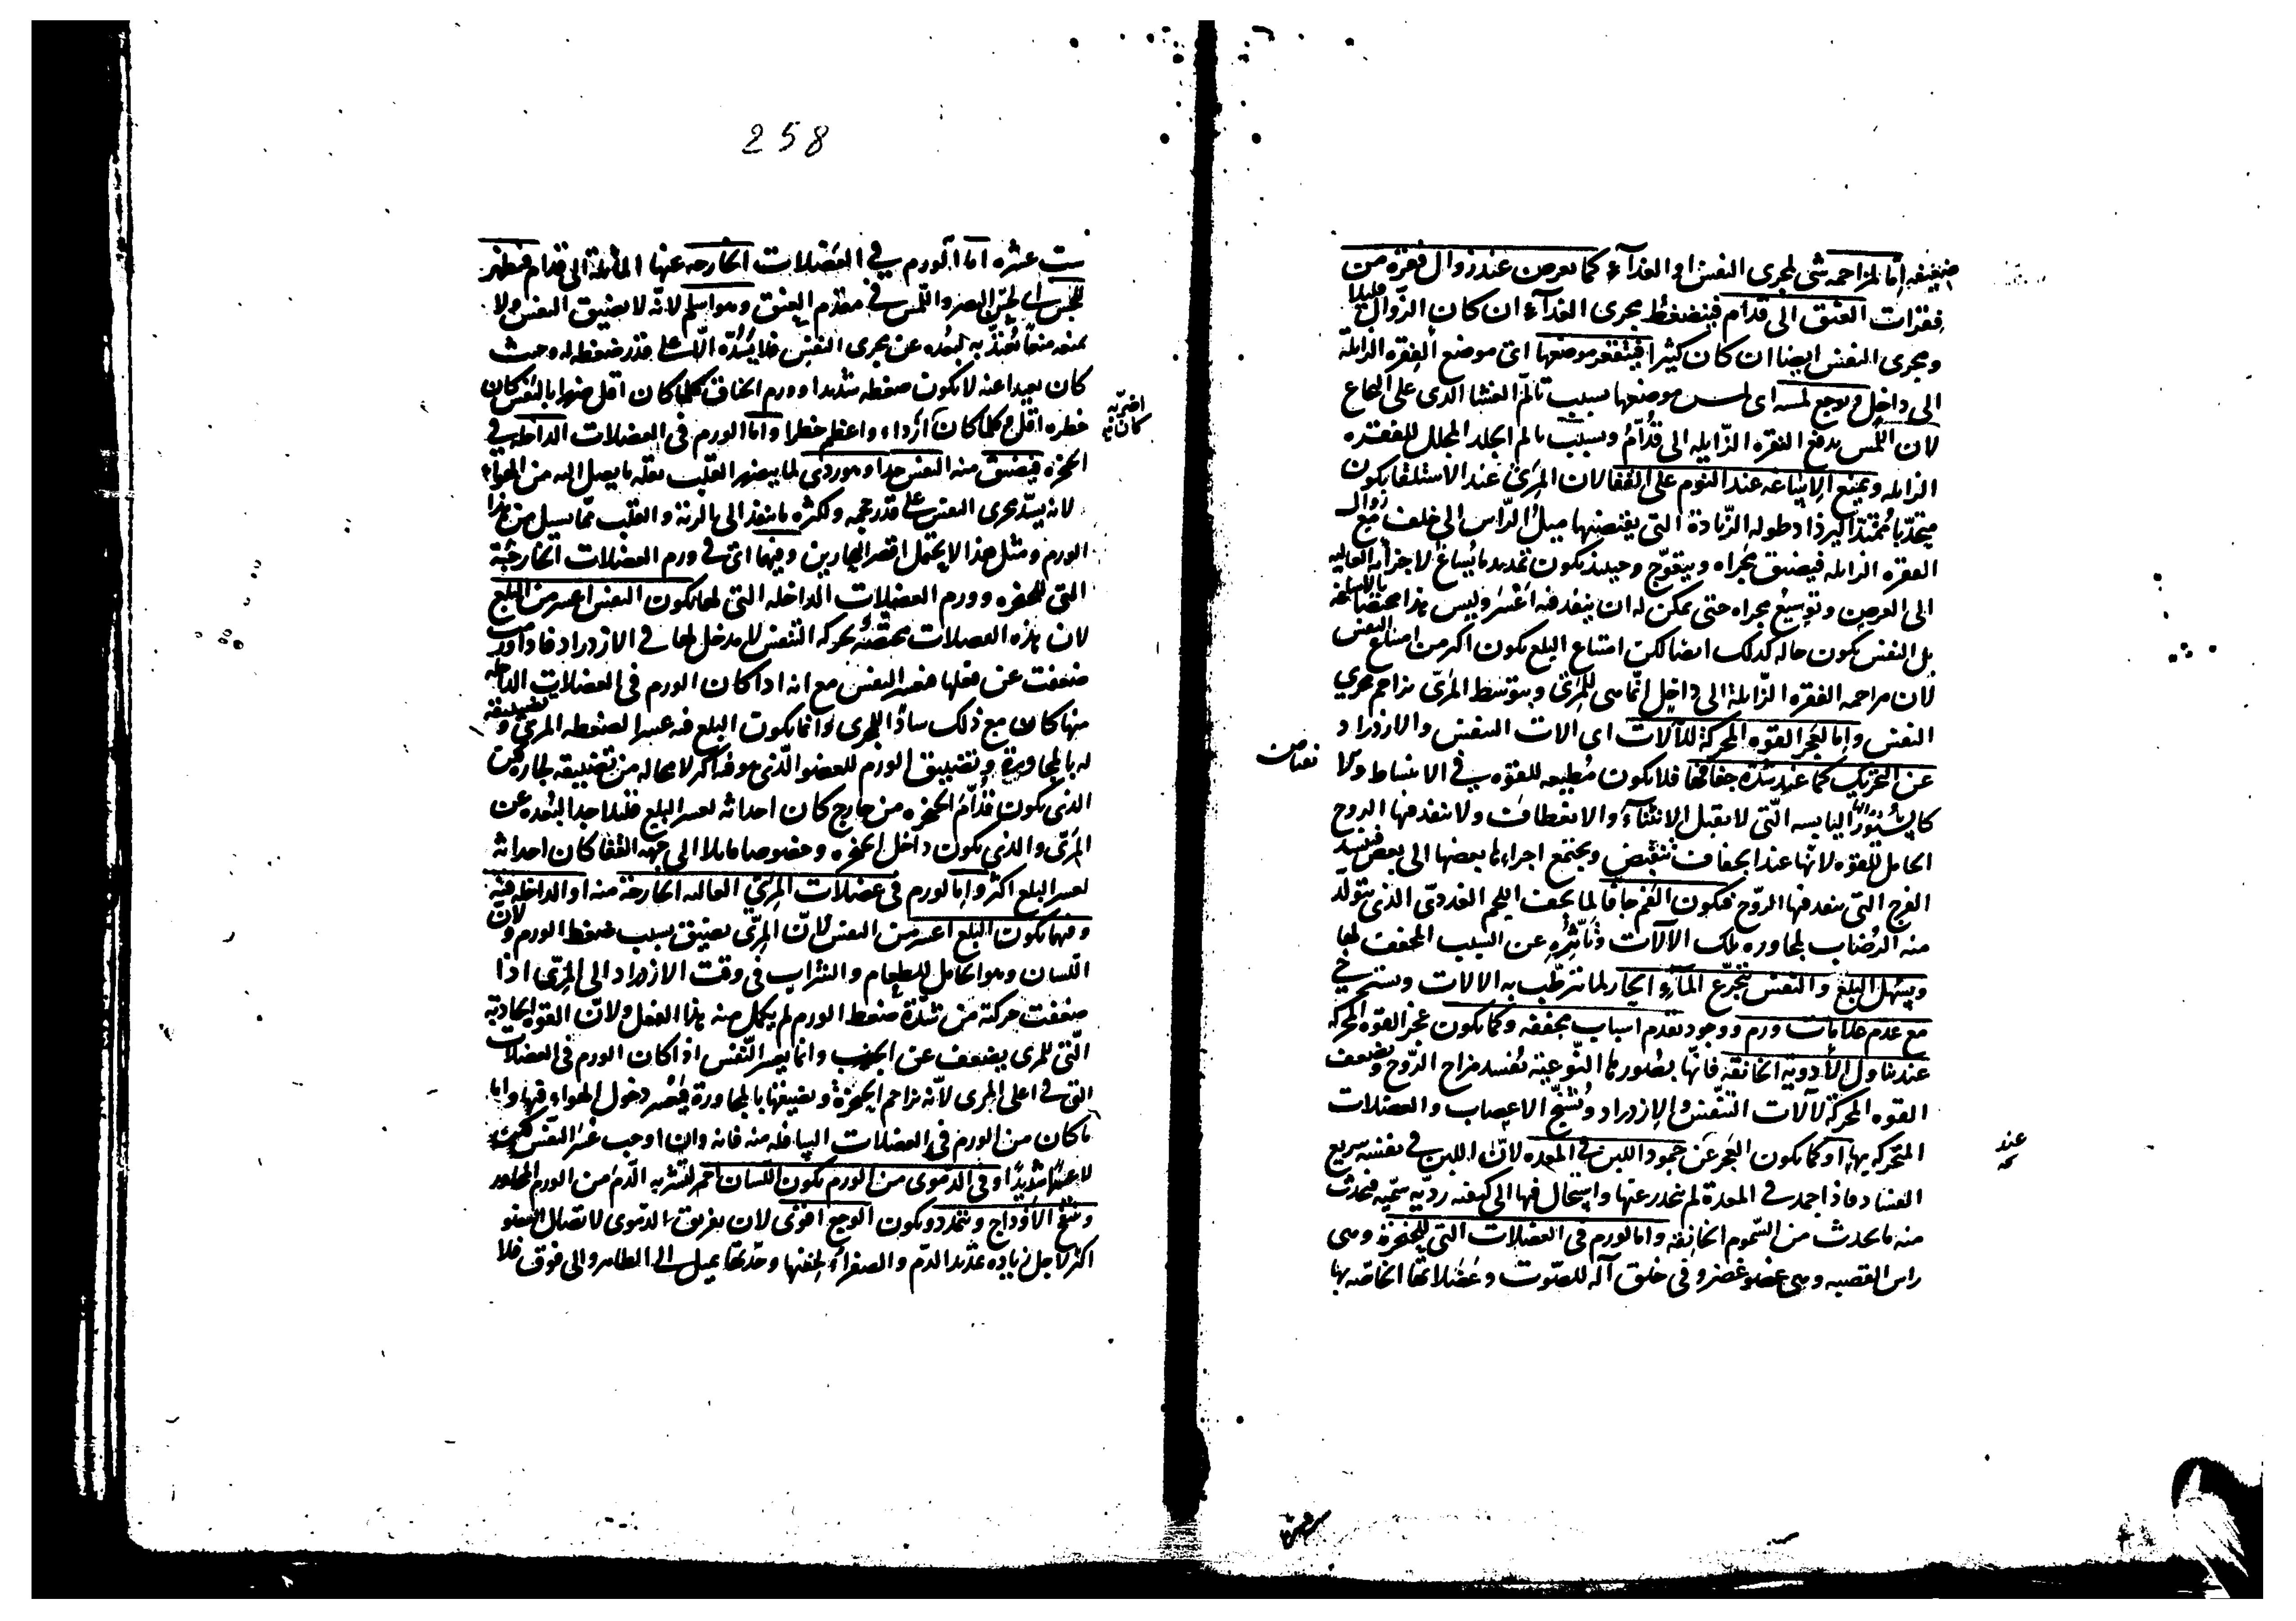 ضيقه اما لمزاحمه شى لمجرى النفس او الغذآء كما يعرض عند زوال فقره من
فقرات العنق الى قدام فينضغط مجرى الغذآء ان كان الزوال قليلا
ومجرى النفس ايضا ان كان كثيرا فيتقعر موضعها اى موضع الفقره الزايلة
الى داخل ويوجع لمسه اى لمس موضعها بسبب تالم الغشا الذى على النخاع
لان اللمس يدفع الفقره الزايله الى قدام وبسبب تالم الجلد المجلل للفقره
الزايله ويمنع الاساغه عند النوم على القفا لان المرئ عند الاستلقا يكون
متحدبا ممتدا ليزداد طوله الزيادة التى يقتضيها ميل الراس الى خلف مع زوال
الفقره الزايله فيضيق مجراه ويتعوج وحينئذ يكون تمديد ما يساغ لاجزأيه العاليه
الى العرض وتوسيع مجراه حتى يمكن له ان ينفد فيه اعسر وليس هذا مختصا بالاساغه
بل النفس يكون حاله كدلك ايضا لكن امتناع البلع يكون اكثر من امتناع النفس
لان مزاحمه الفقره الزايلة الى داخل انما هى للمرئ وبتوسط المرئ يزاحم مجرى
النفس واما لعجز القوه المحركة للآلات اى الات النفس والازدراد
عن التحريك كما عند شدة جفافها فلا يكون مطيعه للقوه فى الانبساط ولا
كالسيور اليابسه التى لا تقبل الانثناء والانعطاف ولا ينفد فيها الروح
الحامل للقوه لانها عند الجفاف تنقبض ويجتمع اجزاؤها بعضها الى بعض فينسد
الفرج التى ينفد فيها الروح فيكون الفم جافا لما يجف اللحم الغددى الذى يتولد
منه الرضاب لمجاوره تلك الآلات وتأثره عن السبب المجفف لها
ويسهل البلع والنفس بتجرع المآء الحار لما يترطب به الالات ويسترخى
مع عدم علامات ورم ووجود تقدم اسباب مجففه وكما يكون عجز القوه المحركه
عند تناول الأدوية الخانقه فانها بصورها النوعية تفسد مزاج الروح ويضعف
القوه المحركة لآلات التنفس والازدراد وتشنج الاعصاب والعضلات
المتحركه بها او كما يكون العجز عن جمود اللبن فى المعده لان اللبن فى نفسه سريع
الفساد فاذا جمد فى المعدة لم ينحدر عنها واستحال فيها الى كيفيه رديه سميه فيحدث
منه ما يحدث من السموم الخانقه واما لورم فى العضلات التى للحنجرة وهى
راس القصبه وهى عضو غضروفى خلق آله للصوت وعضلاتها الخاصه بها
نقباض
عند
258
ست عشره اما الورم فى العضلات الخارجه عنها المائلة الى قدام فيظهر
للحس اى لحس البصر واللمس فى مقدم العنق وهو اسلم لانه لا يضيق النفس ولا
يمنعه منعا يعتد به لبعده عن مجرى النفس فلا يسده الا على قدر ضغطه له وحيث
كان بعيدا عنه لا يكون ضغطه شديدا وورم الخناق كلما كان اقل ضررا بالنفس كان
خطره اقل وكلما كان أردا واعظم خطرا واما الورم فى العضلات الداخله فى
الحنجره فيضيق منه النفس جدا وهو ردى لما يتضرر القلب بقله ما يصل اليه من الهواء
لانه يسد مجرى النفس على قدر حجمه ولكثره ما ينفذ الى الرئة والقلب مما يسيل من هذا
الورم ومثل هذا لا يحتمل اقصر البحارين وفيها اى فى ورم العضلات الخارجة
التى للحنجره وورم العضلات الداخله التى لها يكون النفس اعسر من البلع
لان هذه العضلات مختصه بحركه التنفس لا مدخل لها فى الازدراد فاذا ورمت
ضعفت عن فعلها فيعسر النفس مع انه اذا كان الورم فى العضلات الداخله
منها كان مع ذلك سادا للمجرى وانما يكون البلع فيه عسرا لضغطه المرئ وتضييقه
له بالمجاورة وتضييق الورم للعضو الذى هو فيه اكثر لا محاله من تضييقه لجاره
الذى يكون قدام الحنجره من خارج كان احداثه لعسر البلع قليلا جدا لبعده عن
المرئ والذى يكون داخل الحنجره وخصوصا مايلا الى جهه القفا كان احداثه
لعسر البلع اكثر واما لورم فى عضلات المرئ العاليه الخارجة منه او الداخله فيه
وفيهما يكون البلع اعسر من النفس لان المرئ يضيق بسبب ضغط الورم ولان
اللسان وهو الحامل للطعام والشراب فى وقت الازدراد الى المرئ اذا
ضعفت حركته من شدة ضغط الورم لم يكمل منه هذا الفعل ولان القوه الجاذبة
التى للمرى يضعف عن الجذب وانما يعسر النفس اذا كان الورم فى العضلات
التى فى اعلى المرى لانه يزاحم الحنجرة ويضيقها بالمجاورة فيعسر دخول الهواء فيها واما
ما كان من الورم فى العضلات السافله منه فانه وان اوجب عسر النفس
لا عسرا شديدا وفى الدموى من الورم يكون اللسان احمر لتشربه الدم من الورم المجاور
وتنتفخ الأوداج وتتمدد ويكون الوجع اقوى لان تفريق الدموى لاتصال العضو
اكثر لاجل زياده تمديد الدم والصفراء لخفتها وحدتها يميل الى الظاهر والى فوق فلا